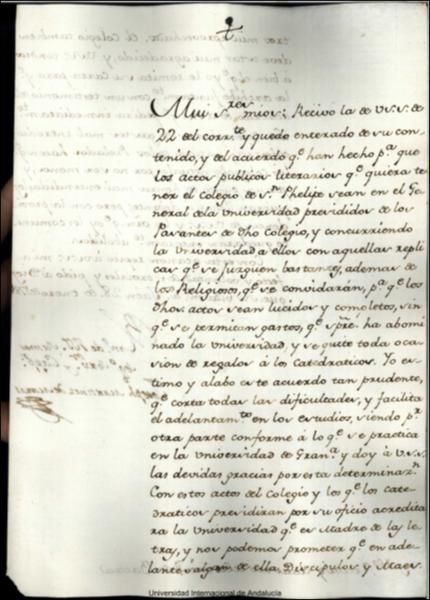 Mui S.res mios: Recivo la de V.S.S. de
22 del corr.te y quedo enterado de su con-
tenido, y del acuerdo q.e han hecho p.a que
los actos publicos literarios q.e quiera te-
ner el Colegio de S.n Phelipe sean en el Ge-
neral dela Universidad presididos de los
Pasantes de dho Colegio, y concurriendo
la Universidad a ellos con aquellas repli-
cas q.e se juzguen bastantes, ademas de
los Religiosos, q.e se convidarán, p.a q.e los
dhos actos sean lucidos y completos, sin
q.e se permitan gastos, q.e spre. ha abomi-
nado la Universidad, y se quite toda oca-
sion de regalos à los Catedraticos. Yo es-
timo y alabo este acuerdo tan prudente,
q.e corta todas las dificultades, y facilita
el adelantam.to en los estudios, siendo p.r
otra parte conforme à lo q.e se practica
en la Universidad de Gran.a y doy à V.S.S.
las devidas gracias por esta determinaz.n
Con estos actos del Colegio y los q.e los cate-
draticos presidiran por su oficio acredita-
ra la Universidad q.e es Madre de las le-
tras, y nos podemos prometer q.e en ade-
lante salgan de ella Discipulos y Maes-
Universidad Internacional de Andalucía